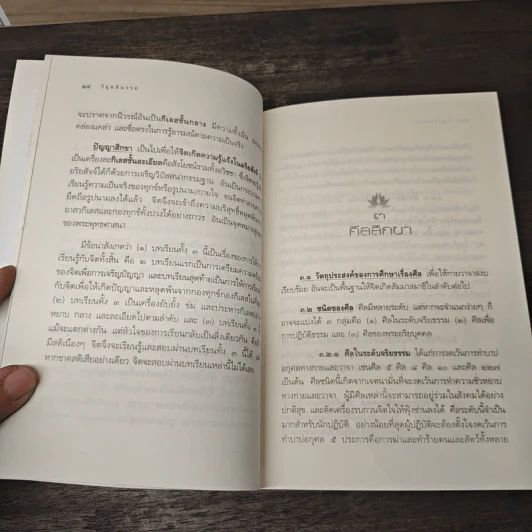 ๑๘ วิมุตติมรรค
จะปราศจากนิวรณ์อันเป็นกิเลสชั้นกลาง มีความตั้งมั่น
คล่องแคล่ว และซื่อตรงในการรู้อารมณ์ตามความเป็นจริง
ปัญญาสิกขา เป็นไปเพื่อให้จิตเกิดความรู้แจ้งในอริยสัจจ์
เป็นเครื่องละกิเลสชั้นละเอียดคือสังโยชน์รวมทั้งอวิชชา ซึ่งจิตจะรู้
อริยสัจจ์ได้ก็ด้วยการเจริญวิปัสสนากรรมฐาน อันเป็นกระบวน
เรียนรู้ความเป็นจริงของทุกข์หรือรูปนาม/กายใจ จนจิต
ยึดถือรูปนามลงได้ จิตจึงจะเข้าถึงความบริสุทธิ์หลุดพ้น
อาสวกิเลสและกองทุกข์ทั้งปวงได้อย่างถาวร อันเป็นจุดหมายสูง
ของพระพุทธศาสนา
มีข้อน่าสังเกตว่า (๑) บทเรียนทั้ง ๓ นี้เป็นเรื่องของการให้
เรียนรู้กับจิตทั้งสิ้น คือ ๒ บทเรียนแรกเป็นการเตรียมความ
ของจิตเพื่อการเจริญปัญญา และบทเรียนสุดท้ายเป็นการให้
กับจิตเพื่อให้เกิดปัญญาและหลุดพ้นจากกองทุกข์กองกิเลส
(๒) บทเรียนทั้ง ๓ นี้เป็นเครื่องยับยั้ง ข่ม และประหารกิเลส
หยาบ กลาง และละเอียดไปตามลำดับ และ (๓) บทเรียนทั้ง ๓
แม้จะแตกต่างกัน แต่หัวใจของการเรียนกลับเป็นสิ่งเดียวกัน คือ
มีสติเนืองๆ จิตจึงจะเรียนรู้และสอบผ่านบทเรียนทั้ง ๓ นี้ได้
หากขาดสติเสียอย่างเดียว จิตจะสอบผ่านบทเรียนเหล่านี้ไม่ได้เลย
๓
ศีลสิกขา
๓.๑ วัตถุประสงค์ของการศึกษาเรื่องศีล เพื่อให้กายวาจาสงบ
เรียบร้อย อันจะเป็นพื้นฐานให้จิตเกิดสัมมาสมาธิในลำดับต่อไป
๓.๒ ชนิดของศีล ศีลมีหลายระดับ แต่หากจะจำแนกง่ายๆ ก็
อาจจะแบ่งได้ ๓ กลุ่มคือ (๑) ศีลในระดับจริยธรรม (๒) ศีลเพื่อ
การปฏิบัติธรรม และ (๓) ศีลของพระอริยบุคคล
๓.๒.๑ ศีลในระดับจริยธรรม ได้แก่การงดเว้นการทำบาป
อกุศลทางกายและวาจา เช่นศีล ๕ ศีล ๘ ศีล ๑๐ และศีล ๒๒๗
เป็นต้น ศีลชนิดนี้เกิดจากเจตนามั่นที่จะงดเว้นการทำความชั่วหยาบ
ทางกายและวาจา ผู้มีศีลเหล่านี้จะสามารถอยู่ร่วมในสังคมได้อย่าง
ปกติสุข และตัดเครื่องรบกวนจิตใจให้ฟุ้งซ่านลงได้ ศีลระดับนี้จำเป็น
มากสำหรับนักปฏิบัติ อย่างน้อยที่สุดผู้ปฏิบัติจะต้องตั้งใจงดเว้นการ
ทำบาปอกุศล ๕ ประการคือการฆ่าและทำร้ายคนและสัตว์ทั้งหลาย